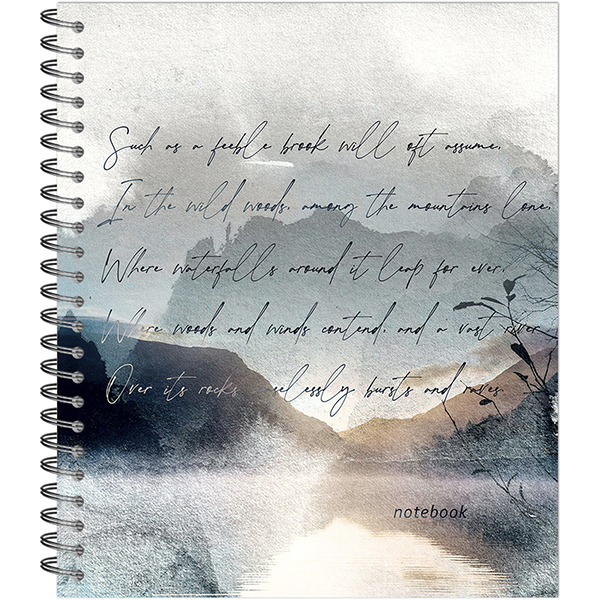 Such as a feeble brook will oft assume,
In the wild woods, among the mountains lone,
Where waterfalls around it leap for ever,
Where woods and winds contend, and a vast river
Over its rocks ceaselessly bursts and raves.
notebook